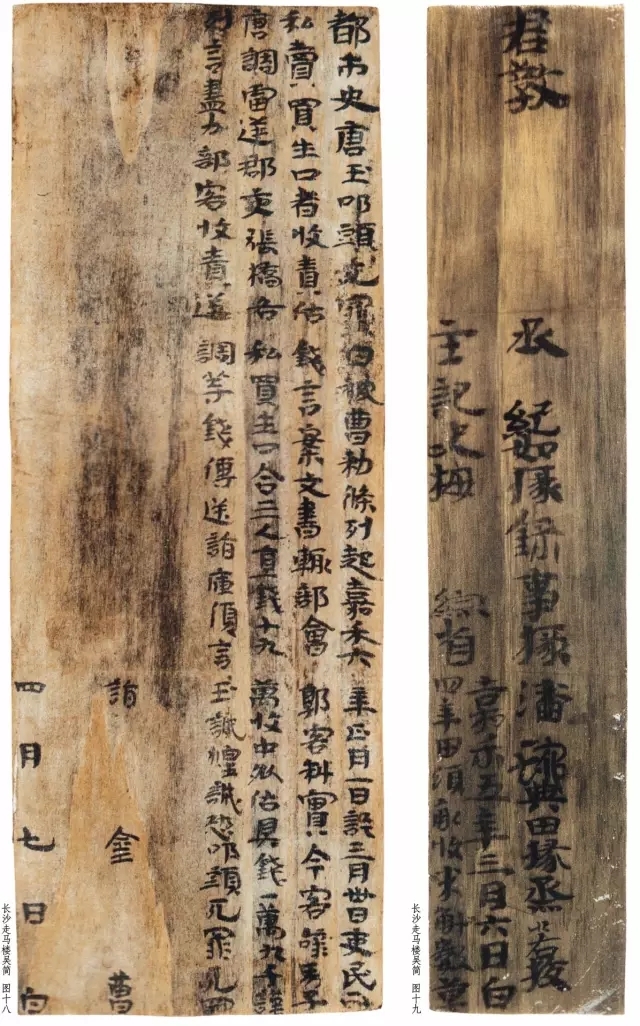 都市史唐玉叩頭死罪白被曹勑條列起嘉禾六年正月一日訖三月卅日吏民所
私賣買生口者收責估錢言案文書輒部會郭客料實今客辭男子
唐調雷逆郡吏張橋各私買生口合三人直錢十九萬收中外估具錢一萬九千譚
列言盡力部客收責逆調等錢傳送詣庫復言玉誠惶誠恐叩頭死罪死罪
詣金曹
四月七日白
长沙走马楼吴简 图十八
君教
丞紀如掾錄事掾潘琬典田掾烝若校
主記史梅綜省
嘉禾五年三月六日白
四年田頃畝收米斛數草
长沙走马楼吴简 图十九